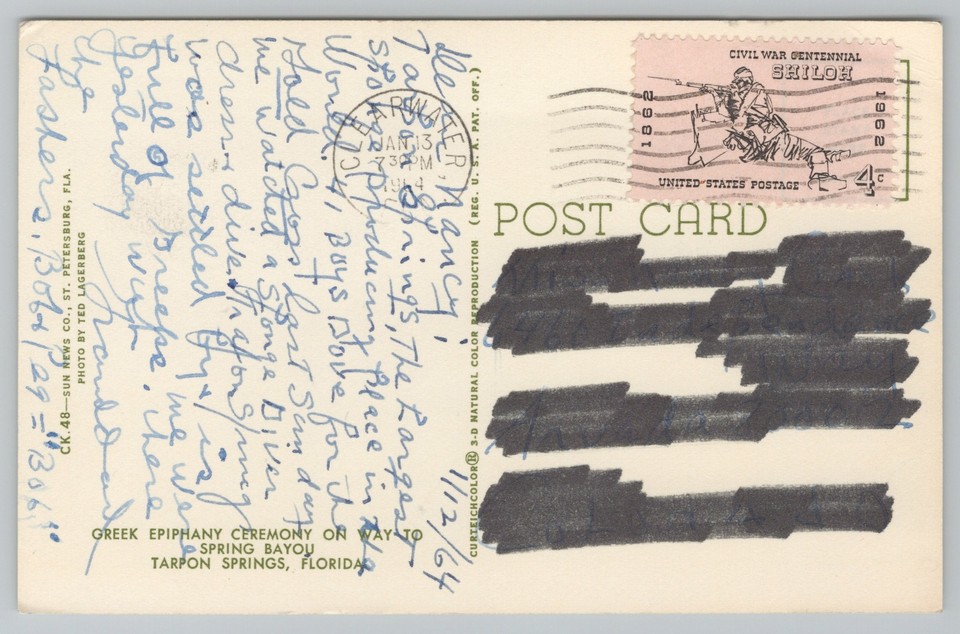 CIVIL WAR CENTENNIAL
SHILOH
1862
1962
UNITED STATES POSTAGE
4c
CLEARWATER,
JAN 13
7 30 PM
1964
POST CARD
1/12/64
Hello Nancy:
Tarpon Springs, The Largest
Sponge Producing Place in the
World. 41 Boys Dove for the
Gold Cross Last Sunday
We watched a Sponge Diver
dress & dive. Tarpon Springs
was settled by & is
full of Greeks. We were
There
Yesterday with
The
Fashers, Bob &
Grand
"Bob"
GREEK EPIPHANY CEREMONY ON WAY TO
SPRING BAYOU
TARPON SPRINGS, FLORIDA
CK.48—SUN NEWS CO., ST. PETERSBURG, FLA.
PHOTO BY TED LAGERBERG
CURTEICHCOLOR® 3-D NATURAL COLOR REPRODUCTION (REG. U. S. A. PAT. OFF.)